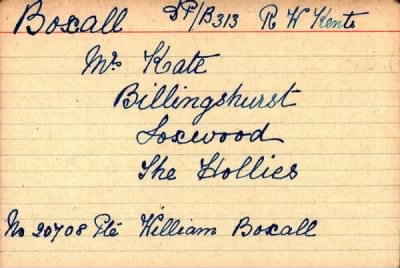 Boxall DF/B313 R W Kents
Mrs Kate
Billingshurst
Loxwood
The Hollies
No 20708 Pte William Boxall